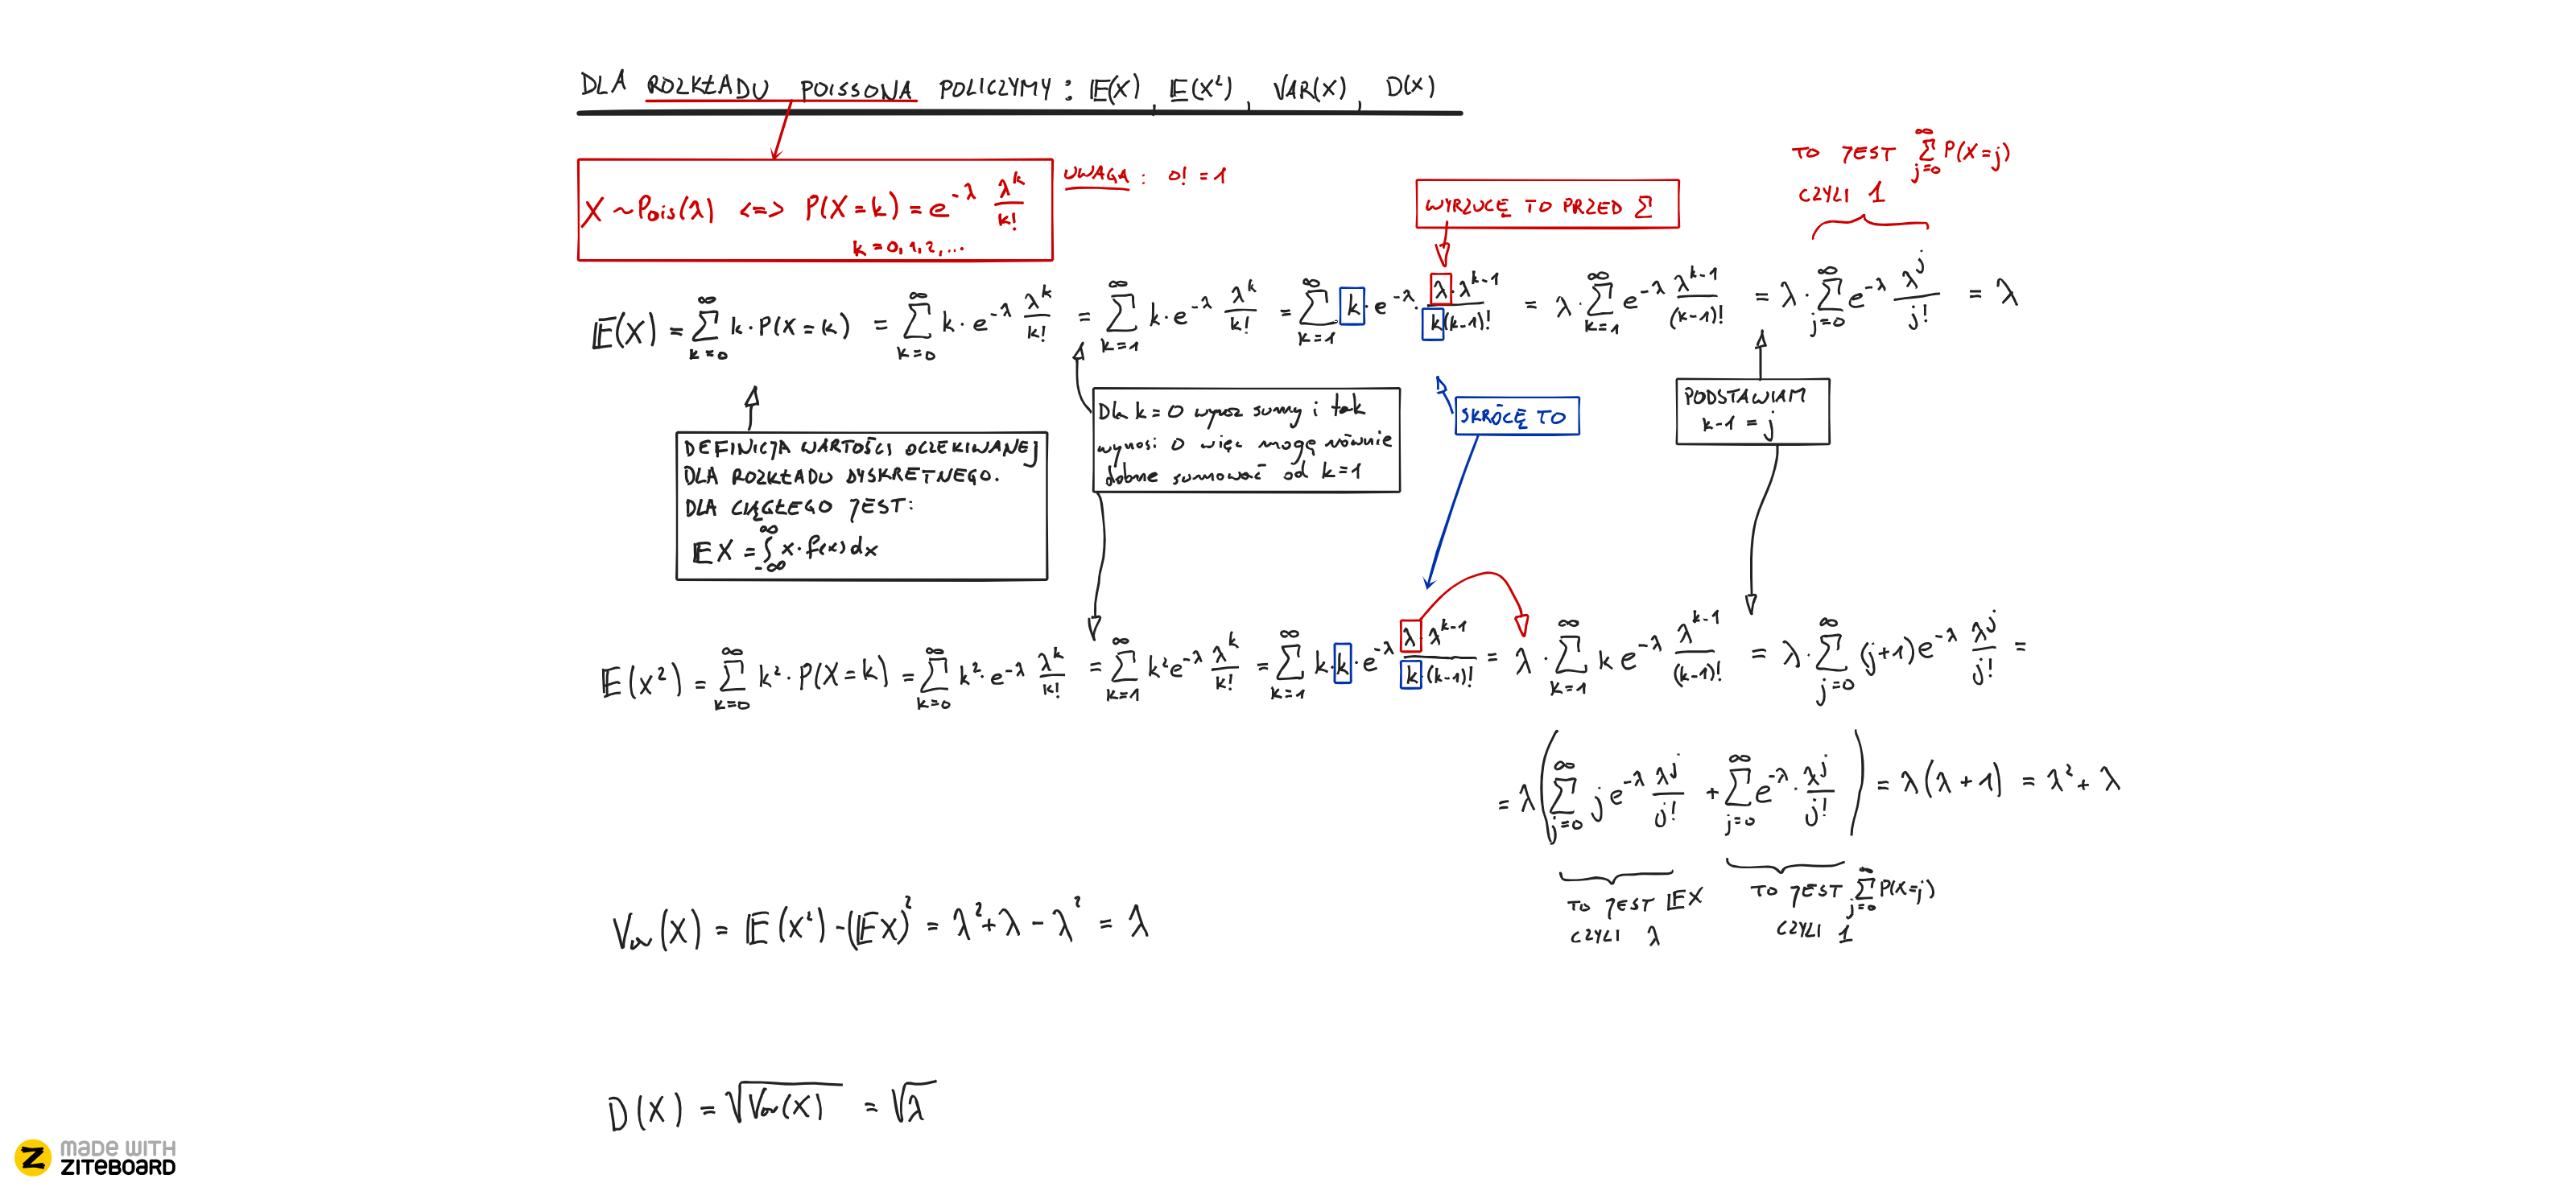 DLA ROZKŁADU POISSONA POLICZYMY: 𝔼(X), 𝔼(X²), VAR(X), D(X)
X ~ Pois(λ) <=> P(X=k) = e^{-λ} λ^k / k!
k = 0, 1, 2, ...
UWAGA: 0! = 1
WYRZUCĘ TO PRZED Σ
TO JEST Σ_{j=0}^{∞} P(X=j)
CZYLI 1
𝔼(X) = Σ_{k=0}^{∞} k · P(X=k) = Σ_{k=0}^{∞} k · e^{-λ} λ^k / k! = Σ_{k=1}^{∞} k · e^{-λ} λ^k / k! = Σ_{k=1}^{∞} k · e^{-λ} · λ · λ^{k-1} / k(k-1)! = λ · Σ_{k=1}^{∞} e^{-λ} λ^{k-1} / (k-1)! = λ · Σ_{j=0}^{∞} e^{-λ} λ^j / j! = λ
DEFINICJA WARTOŚCI OCZEKIWANEJ
DLA ROZKŁADU DYSKRETNEGO.
DLA CIĄGŁEGO JEST:
𝔼X = ∫_{-∞}^{∞} x · f(x) dx
Dla k = 0 wyraz sumy i tak
wynosi 0 więc mogę równie
dobrze sumować od k = 1
SKRÓCĘ TO
PODSTAWIAM
k-1 = j
𝔼(X²) = Σ_{k=0}^{∞} k² · P(X=k) = Σ_{k=0}^{∞} k² · e^{-λ} λ^k / k! = Σ_{k=1}^{∞} k² e^{-λ} λ^k / k! = Σ_{k=1}^{∞} k · k · e^{-λ} λ · λ^{k-1} / k · (k-1)! = λ · Σ_{k=1}^{∞} k e^{-λ} λ^{k-1} / (k-1)! = λ · Σ_{j=0}^{∞} (j+1) e^{-λ} λ^j / j! =
= λ ( Σ_{j=0}^{∞} j e^{-λ} λ^j / j! + Σ_{j=0}^{∞} e^{-λ} · λ^j / j! ) = λ(λ+1) = λ² + λ
TO JEST 𝔼X
CZYLI λ
TO JEST Σ_{j=0}^{∞} P(X=j)
CZYLI 1
Var(X) = 𝔼(X²) - (𝔼X)² = λ² + λ - λ² = λ
D(X) = √Var(X) = √λ
MADE WITH
ZITEBOARD